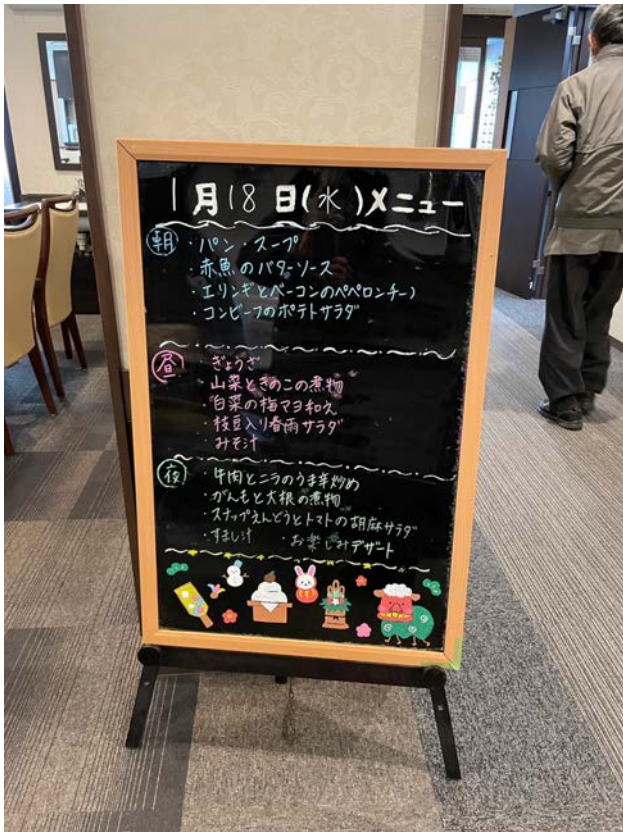 1月18日(水)メニュー
朝 ・パン・スープ
・赤魚のバターソース
・エリンギとベーコンのペペロンチーノ
・コンビーフのポテトサラダ
昼 ぎょうざ
・山菜ときのこの煮物
・白菜の梅マヨ和え
・枝豆入り春雨サラダ
みそ汁
夜 牛肉とニラのうま辛炒め
・がんもと大根の煮物
・スナップえんどうとトマトの胡麻サラダ
・すまし汁 ・お楽しみデザート